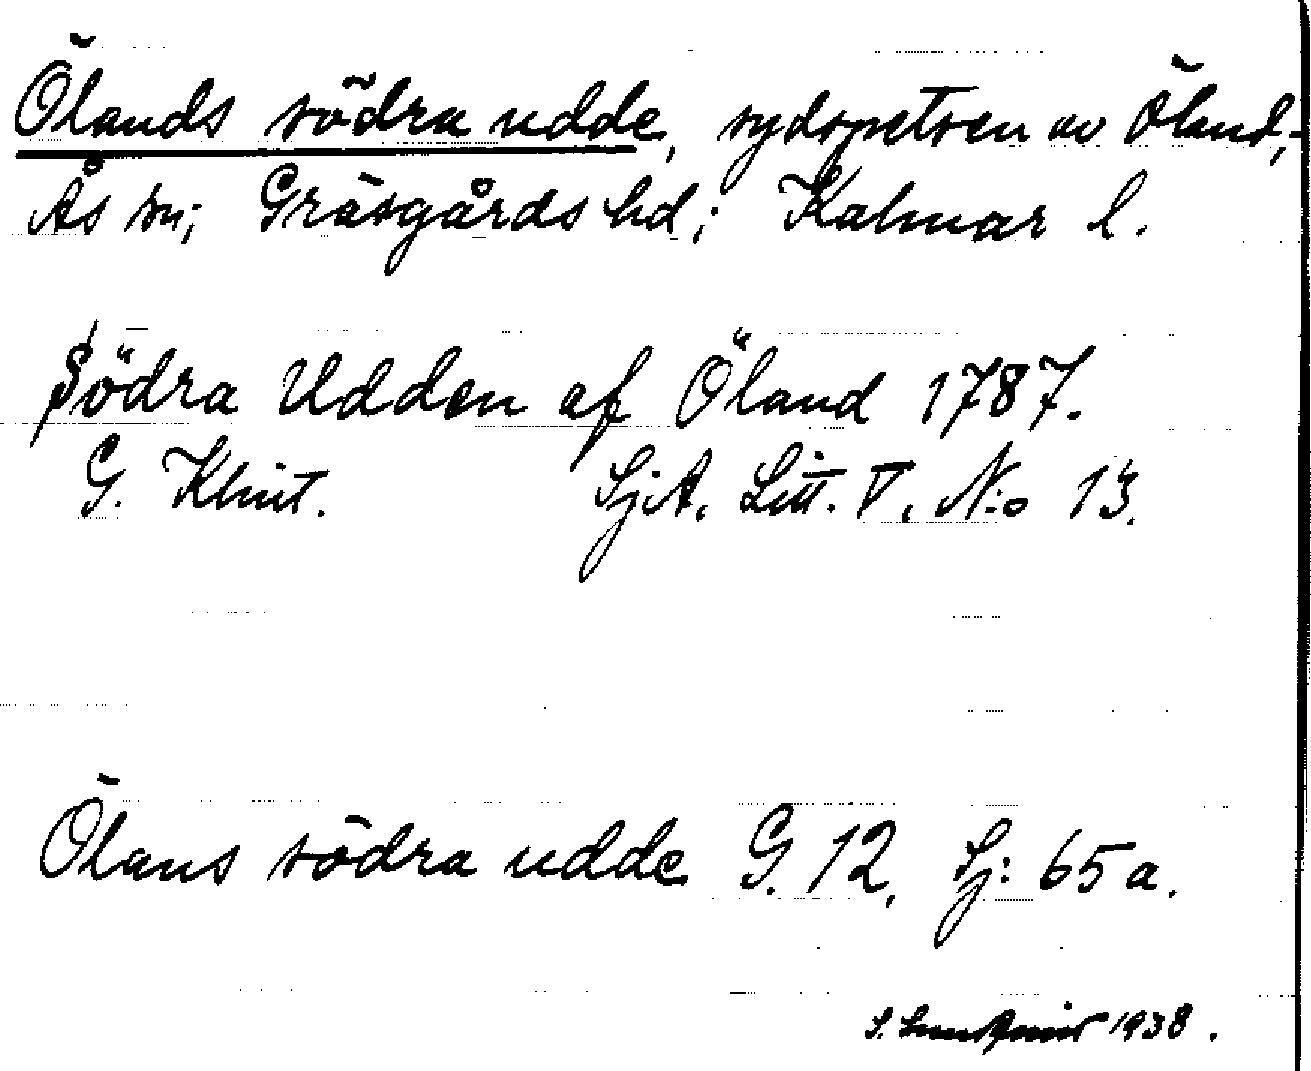 Ölands södra udde, sydspetsen av Öland,
Ås sn; Gräsgårds hd; Kalmar l.
Södra Udden af Öland 1787.
G. Klint. SjA. Litt. V. N:o 13.
Ölans södra udde G. 12, Sj: 65 a.
S. 1938.